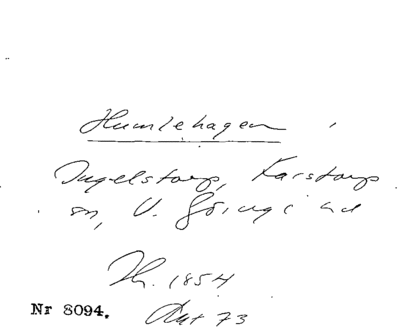 Humlehagen
Ingelstorp, Farstorps
sn, V. Göinge hd
Th. 1854
Nr 8094. Akt 73